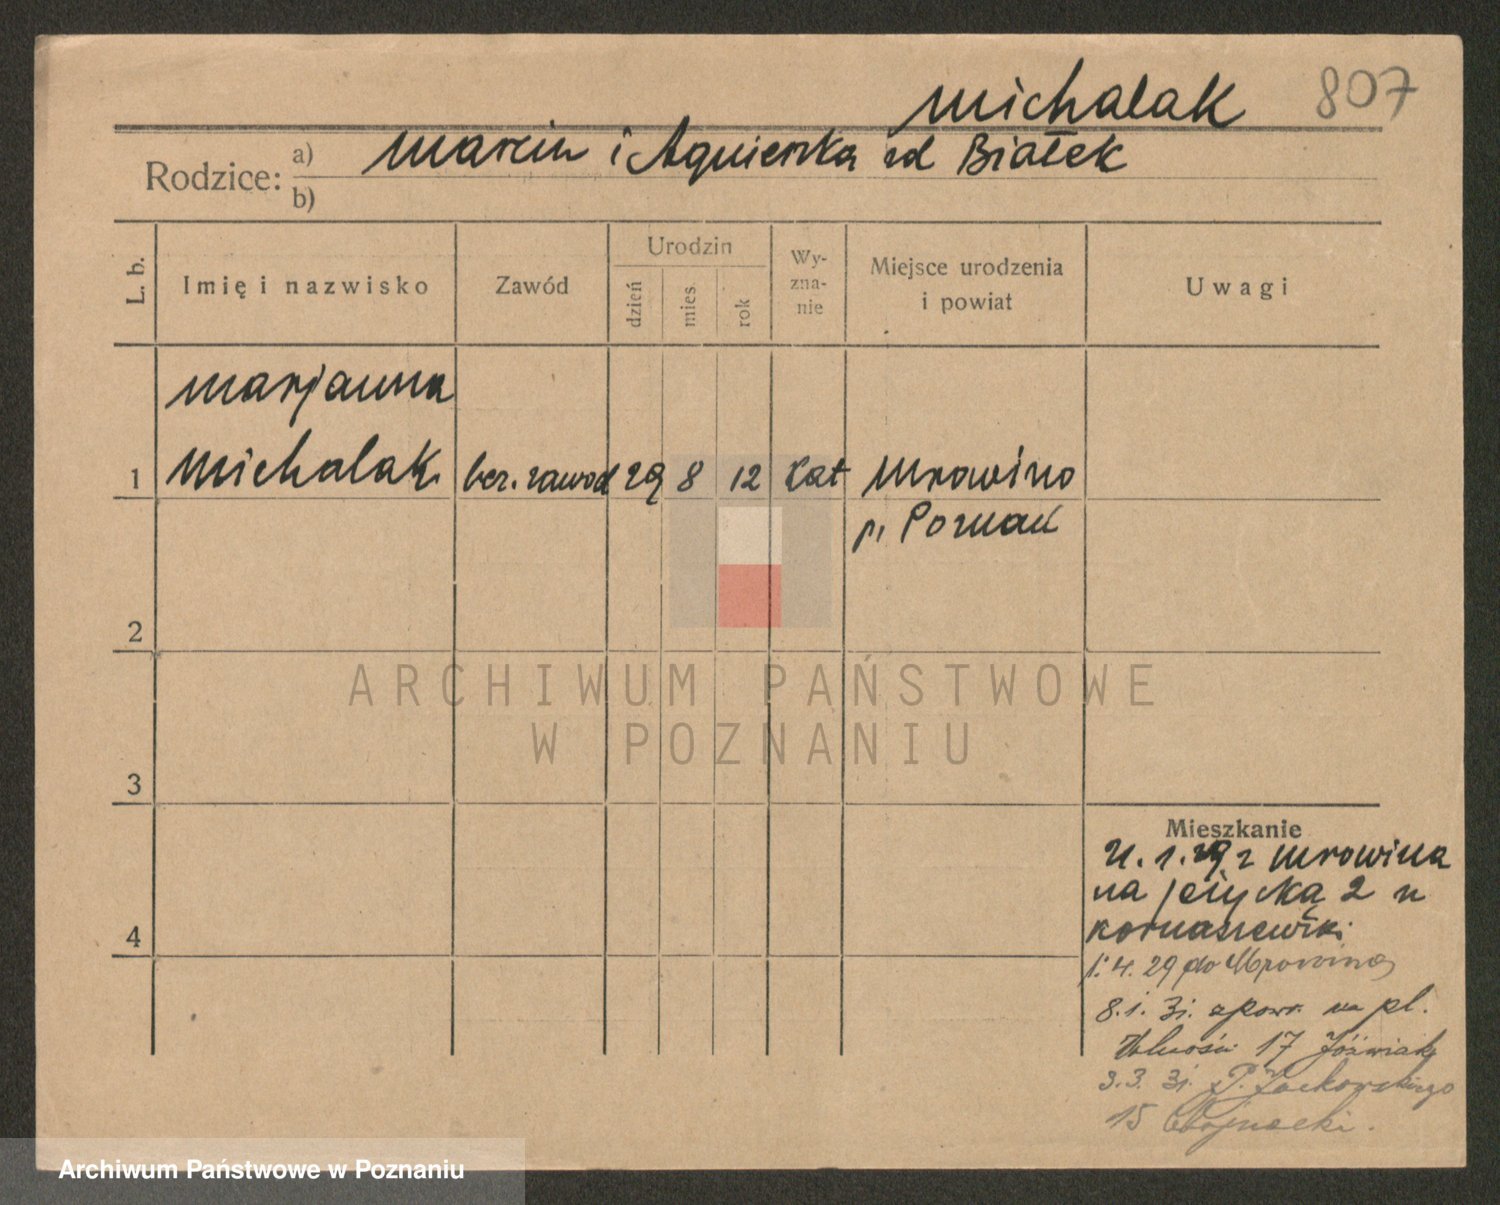 michalak 807
Rodzice: a) marcin i Agnieszka zd Białek
b)
L. b.
Imię i nazwisko
Zawód
Urodzin
dzień
mies.
rok
Wy-
zna-
nie
Miejsce urodzenia
i powiat
Uwagi
marjanna
1 michalak bez. zawod 29 8 12 kat mrowino
p. Poznań
2
ARCHIWUM PAŃSTWOWE
W POZNANIU
3
4
Mieszkanie
1. 29 z mrowina
na jeżycką 2 u
kornaszewski
1. 4. 29 do Mrowina
8. 1. 31. zpowr. na pl.
Wolności 17 Jóźwiak
3. 3. 31. P. Jackowskiego
15 Wojnecki.
Archiwum Państwowe w Poznaniu